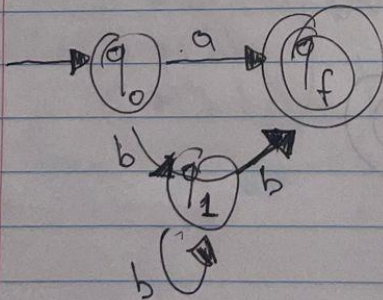 a
q0 qf
b q1 b
b